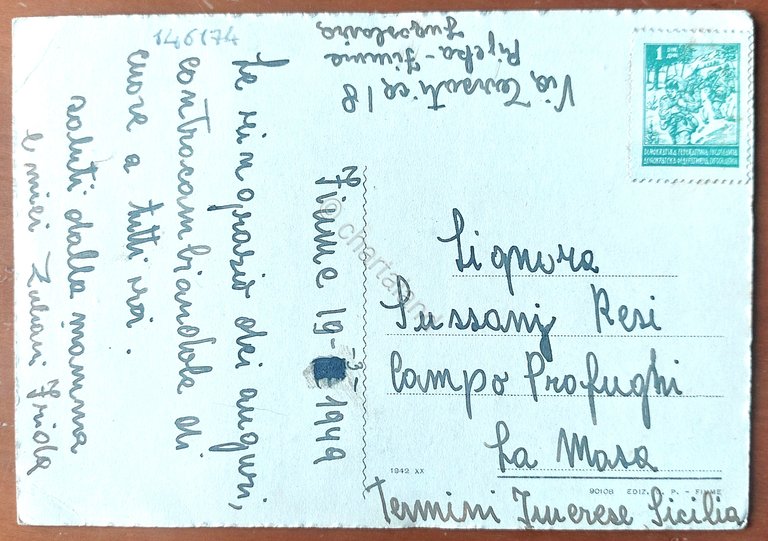 146174
Fiume 19-3-1949
La ringrazio dei auguri,
contracambiandole di
cuore a tutti voi.
saluti dalla mamma
e miei Zuliani Frida
Rijeka-Fiume
Jugoslavia
1 DIN
ДИН
DEMOKRATSKA FEDERATIVNA JUGOSLAVIJA
ДЕМОКРАТСКА ФЕДЕРАТИВНА ЈУГОСЛАВИЈА
Signora
Pussanij Resi
Campo Profughi
La Masa
Termini Imerese Sicilia
1942 XX
90108 EDIZ. P. - FIUME
© chartaland